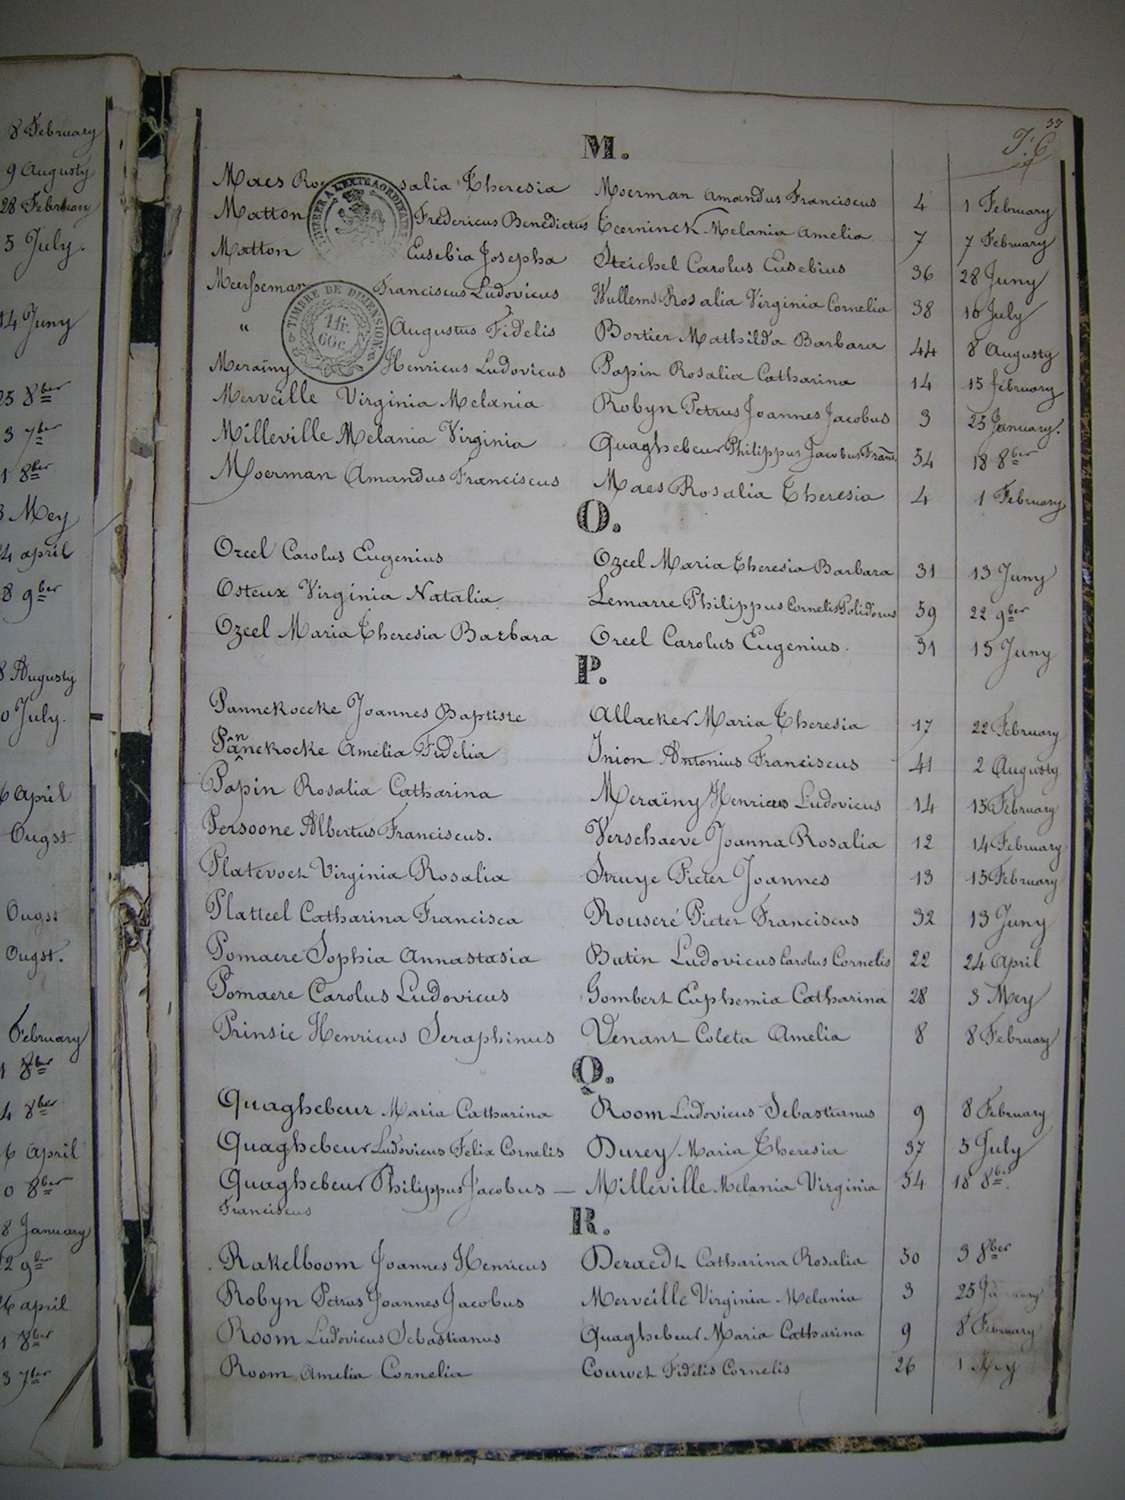 8 February
9 Augusty
28 Februari
5 July.
14 Juny
25 8ber
3 7ber
1 8ber
3 Mey
24 april
8 9ber
8 Augusty
0 July.
6 April
Ougst
Ougst
Ougst.
February
1 8ber
4 8ber
6 April
0 8ber
8 January
2 9ber
26 april
1 8ber
3 7ber
33
M.
Maes Theresia Moerman Amandus Franciscus 4 1 February
Matton Fredericus Benedictus Teerninck Melania Amelia 7 7 February
Matton Eusebia Josepha Steichel Carolus Eusebius 36 28 Juny
Meersseman Franciscus Ludovicus Wullems Rosalia Virginia Cornelia 38 10 July
" Augustus Fidelis Bortier Mathilda Barbara 44 8 Augusty
Meraïny Henricus Ludovicus Papin Rosalia Catharina 14 15 february
Merveille Virginia Melania Robyn Petrus Joannes Jacobus 3 25 January.
Milleville Melania Virginia Quaghebeur Philippus Jacobus Franc 54 18 8ber
Moerman Amandus Franciscus Maes Rosalia Theresia 4 1 February
TIMBRE DE DIMENSION
1 fr.
60 c.
O.
Oreel Carolus Eugenius Ozeel Maria Theresia Barbara 31 13 Juny
Osteux Virginia Natalia Lemarre Philippus Cornelis Polidorus 59 22 9ber
Ozeel Maria Theresia Barbara Oreel Carolus Eugenius. 31 13 Juny
P.
Pannekoecke Joannes Baptiste Allacker Maria Theresia 17 22 February
Pannekocke Amelia Fidelia Inion Antonius Franciscus 41 2 Augusty
Papin Rosalia Catharina Meraïny Henricus Ludovicus 14 15 February
Persoone Albertus Franciscus. Verschaeve Joanna Rosalia 12 14 February
Platevoet Virginia Rosalia Struye Pieter Joannes 13 15 February
Platteel Catharina Francisca Rouseré Pieter Franciscus 32 13 Juny
Pomaere Sophia Annastasia Butin Ludovicus Carolus Cornelis 22 24 April
Pomaere Carolus Ludovicus Gombert Euphemia Catharina 28 3 Mey
Prinsie Henricus Seraphinus Venant Coleta Amelia 8 8 February
Q.
Quaghebeur Maria Catharina Room Ludovicus Sebastianus 9 8 February
Quaghebeur Ludovicus Felix Cornelis Durey Maria Theresia 37 5 July
Quaghebeur Philippus Jacobus — Milleville Melania Virginia 54 18 8ber.
Franciscus
R.
Rakelboom Joannes Henricus Deraedt Catharina Rosalia 50 3 8ber
Robyn Petrus Joannes Jacobus Merveille Virginia Melania 3 25 January
Room Ludovicus Sebastianus Quaghebeur Maria Catharina 9 8 February
Room Amelia Cornelia Couvet Fidelis Cornelis 26 1 Mey